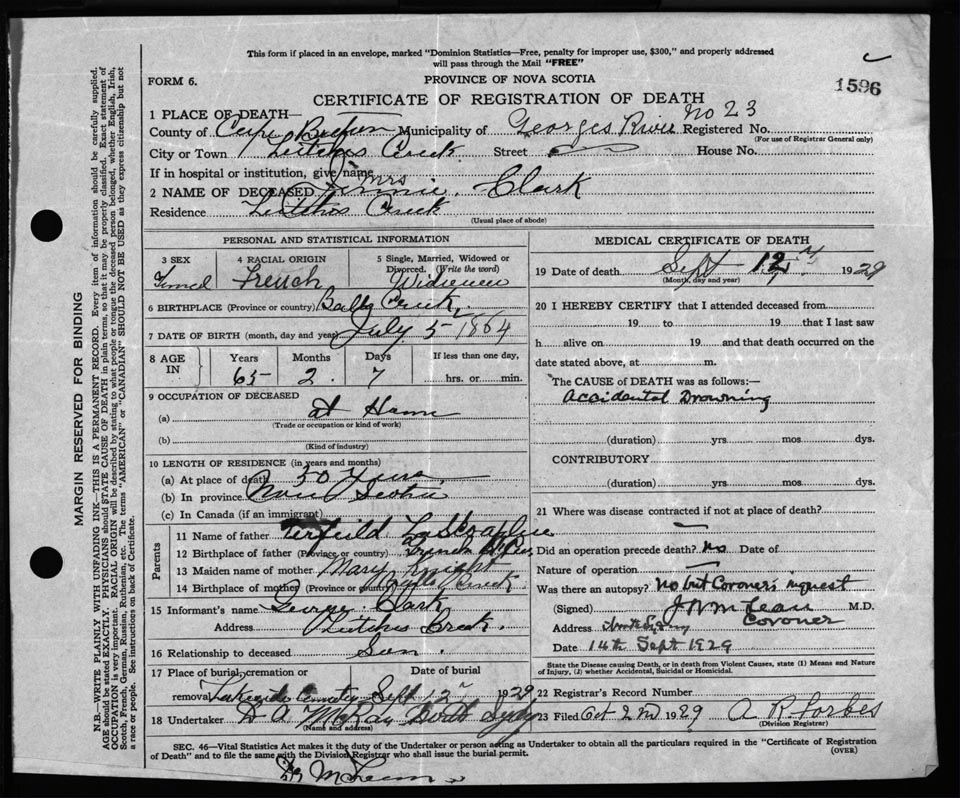 This form if placed in an envelope, marked "Dominion Statistics—Free, penalty for improper use, $300," and properly addressed
will pass through the Mail "FREE"
FORM 6.
PROVINCE OF NOVA SCOTIA
1596
CERTIFICATE OF REGISTRATION OF DEATH
No 23
1 PLACE OF DEATH—
County of Cape Breton Municipality of Georges River Registered No.
(For use of Registrar General only)
City or Town Leitches Creek Street House No.
If in hospital or institution, give name
Mrs
2 NAME OF DECEASED Clark
Residence Leitches Creek
(Usual place of abode)
PERSONAL AND STATISTICAL INFORMATION
3 SEX
4 RACIAL ORIGIN
French
5 Single, Married, Widowed or
Divorced. (Write the word)
6 BIRTHPLACE (Province or country) Creek
7 DATE OF BIRTH (month, day and year) July 5 1864
8 AGE
IN
Years Months Days If less than one day,
65 2 7 hrs. or min.
9 OCCUPATION OF DECEASED
(a) at Home
(Trade or occupation or kind of work)
(b)
(Kind of industry)
10 LENGTH OF RESIDENCE (in years and months)
(a) At place of death 50 Years
(b) In province Nova Scotia
(c) In Canada (if an immigrant)
Parents
11 Name of father
12 Birthplace of father (Province or country)
13 Maiden name of mother Mary Knight
14 Birthplace of mother (Province or country) Creek
15 Informant's name George Clark
Address Leitches Creek.
16 Relationship to deceased Son.
17 Place of burial, cremation or removal Date of burial
Lakeside Cemetery Sept 1929
18 Undertaker D A McRay North Sydney
(Name and address)
MEDICAL CERTIFICATE OF DEATH
19 Date of death Sept 12 1929
(Month, day and year)
20 I HEREBY CERTIFY that I attended deceased from
19 to 19 that I last saw
h alive on 19 and that death occurred on the
date stated above, at m.
The CAUSE of DEATH was as follows:—
Accidental Drowning
(duration) yrs. mos. dys.
CONTRIBUTORY
(duration) yrs. mos. dys.
21 Where was disease contracted if not at place of death?
Did an operation precede death? No Date of
Nature of operation
Was there an autopsy? No but Coroner's inquest
(Signed) J W McLean M.D.
Coroner
Address North Sydney
Date 14th Sept 1929
State the Disease causing Death, or in death from Violent Causes, state (1) Means and Nature
of Injury, (2) whether Accidental, Suicidal or Homicidal.
22 Registrar's Record Number
23 Filed Oct 2nd 1929 A R Forbes
(Division Registrar)
SEC. 46—Vital Statistics Act makes it the duty of the Undertaker or person acting as Undertaker to obtain all the particulars required in the "Certificate of Registration
of Death" and to file the same with the Division Registrar who shall issue the burial permit.
(OVER)
Dr McLean
MARGIN RESERVED FOR BINDING
N.B.—WRITE PLAINLY WITH UNFADING INK—THIS IS A PERMANENT RECORD. Every item of information should be carefully supplied.
AGE should be stated EXACTLY. PHYSICIANS should STATE CAUSE OF DEATH in plain terms, so that it may be properly classified. Exact statement of
OCCUPATION is very important. RACIAL ORIGIN will be described by stating to what people or tongue the deceased person belonged, whether English, Irish,
Scotch, French, German, Russian, Ruthenian, etc. The terms "AMERICAN" or "CANADIAN" SHOULD NOT BE USED as they express citizenship but not
a race or people. See instructions on back of Certificate.